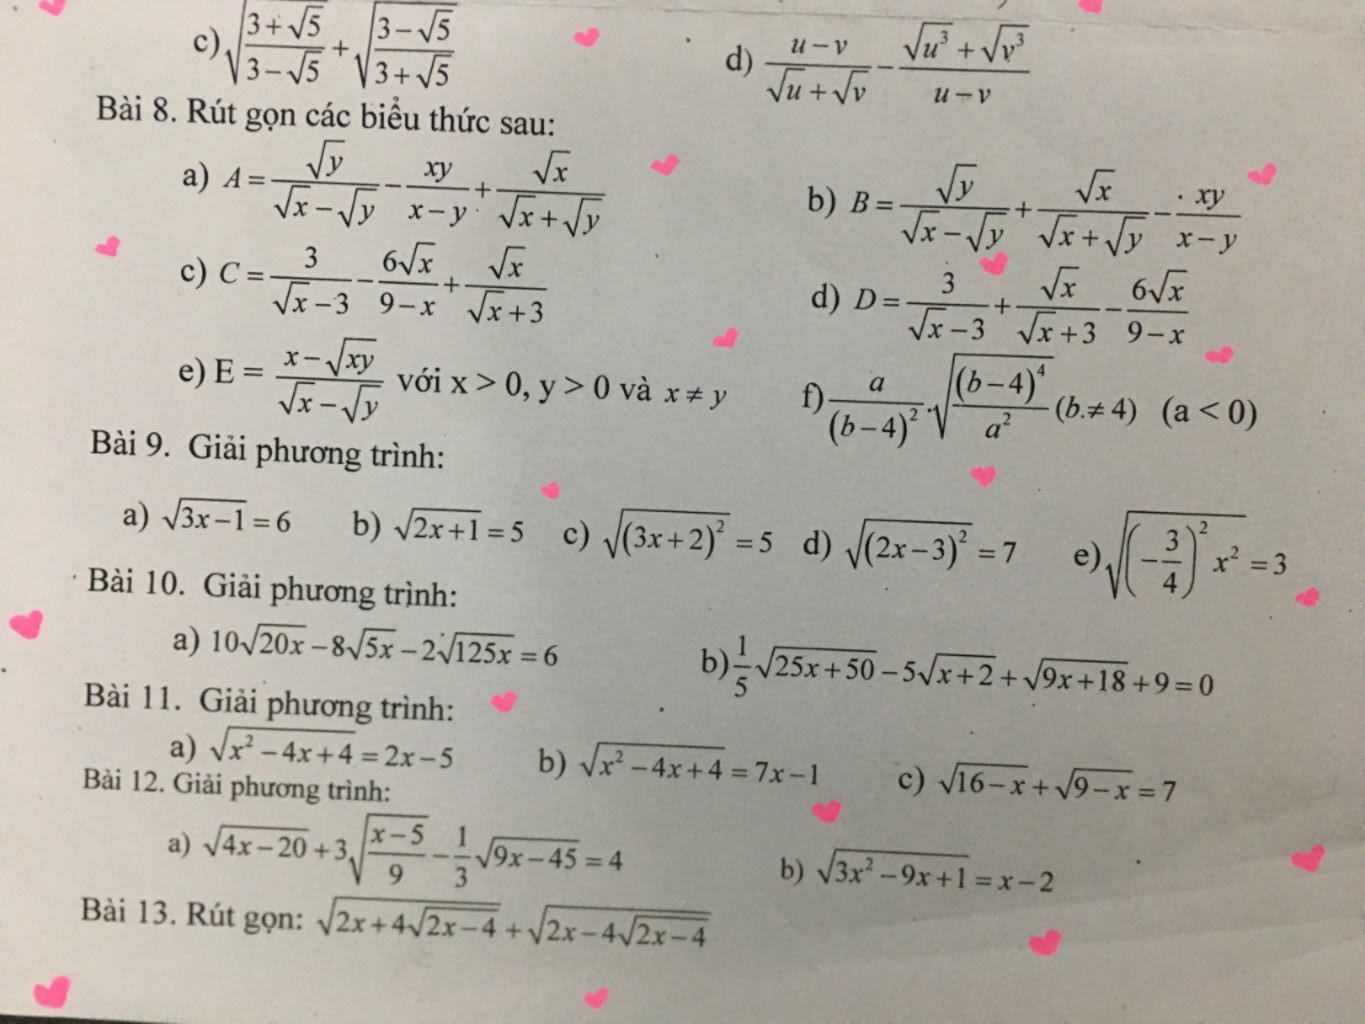 c) √((3+√5)/(3−√5)) + √((3−√5)/(3+√5)) d) (u−v)/(√u+√v) − (√u³+√v³)/(u−v)
Bài 8. Rút gọn các biểu thức sau:
a) A = √y/(√x−√y) − xy/(x−y) + √x/(√x+√y) b) B = √y/(√x−√y) + √x/(√x+√y) − xy/(x−y)
c) C = 3/(√x−3) − 6√x/(9−x) + √x/(√x+3) d) D = 3/(√x−3) + √x/(√x+3) − 6√x/(9−x)
e) E = (x−√(xy))/(√x−√y) với x > 0, y > 0 và x ≠ y f) a/(b−4)² . √((b−4)⁴/a²) (b.≠ 4) (a < 0)
Bài 9. Giải phương trình:
a) √(3x−1) = 6 b) √(2x+1) = 5 c) √((3x+2)²) = 5 d) √((2x−3)²) = 7 e) √((−3/4)² x²) = 3
Bài 10. Giải phương trình:
a) 10√(20x) − 8√(5x) − 2√(125x) = 6 b) 1/5 √(25x+50) − 5√(x+2) + √(9x+18) + 9 = 0
Bài 11. Giải phương trình:
a) √(x²−4x+4) = 2x−5 b) √(x²−4x+4) = 7x−1 c) √(16−x) + √(9−x) = 7
Bài 12. Giải phương trình:
a) √(4x−20) + 3√((x−5)/9) − 1/3 √(9x−45) = 4 b) √(3x²−9x+1) = x−2
Bài 13. Rút gọn: √(2x+4√(2x−4)) + √(2x−4√(2x−4))